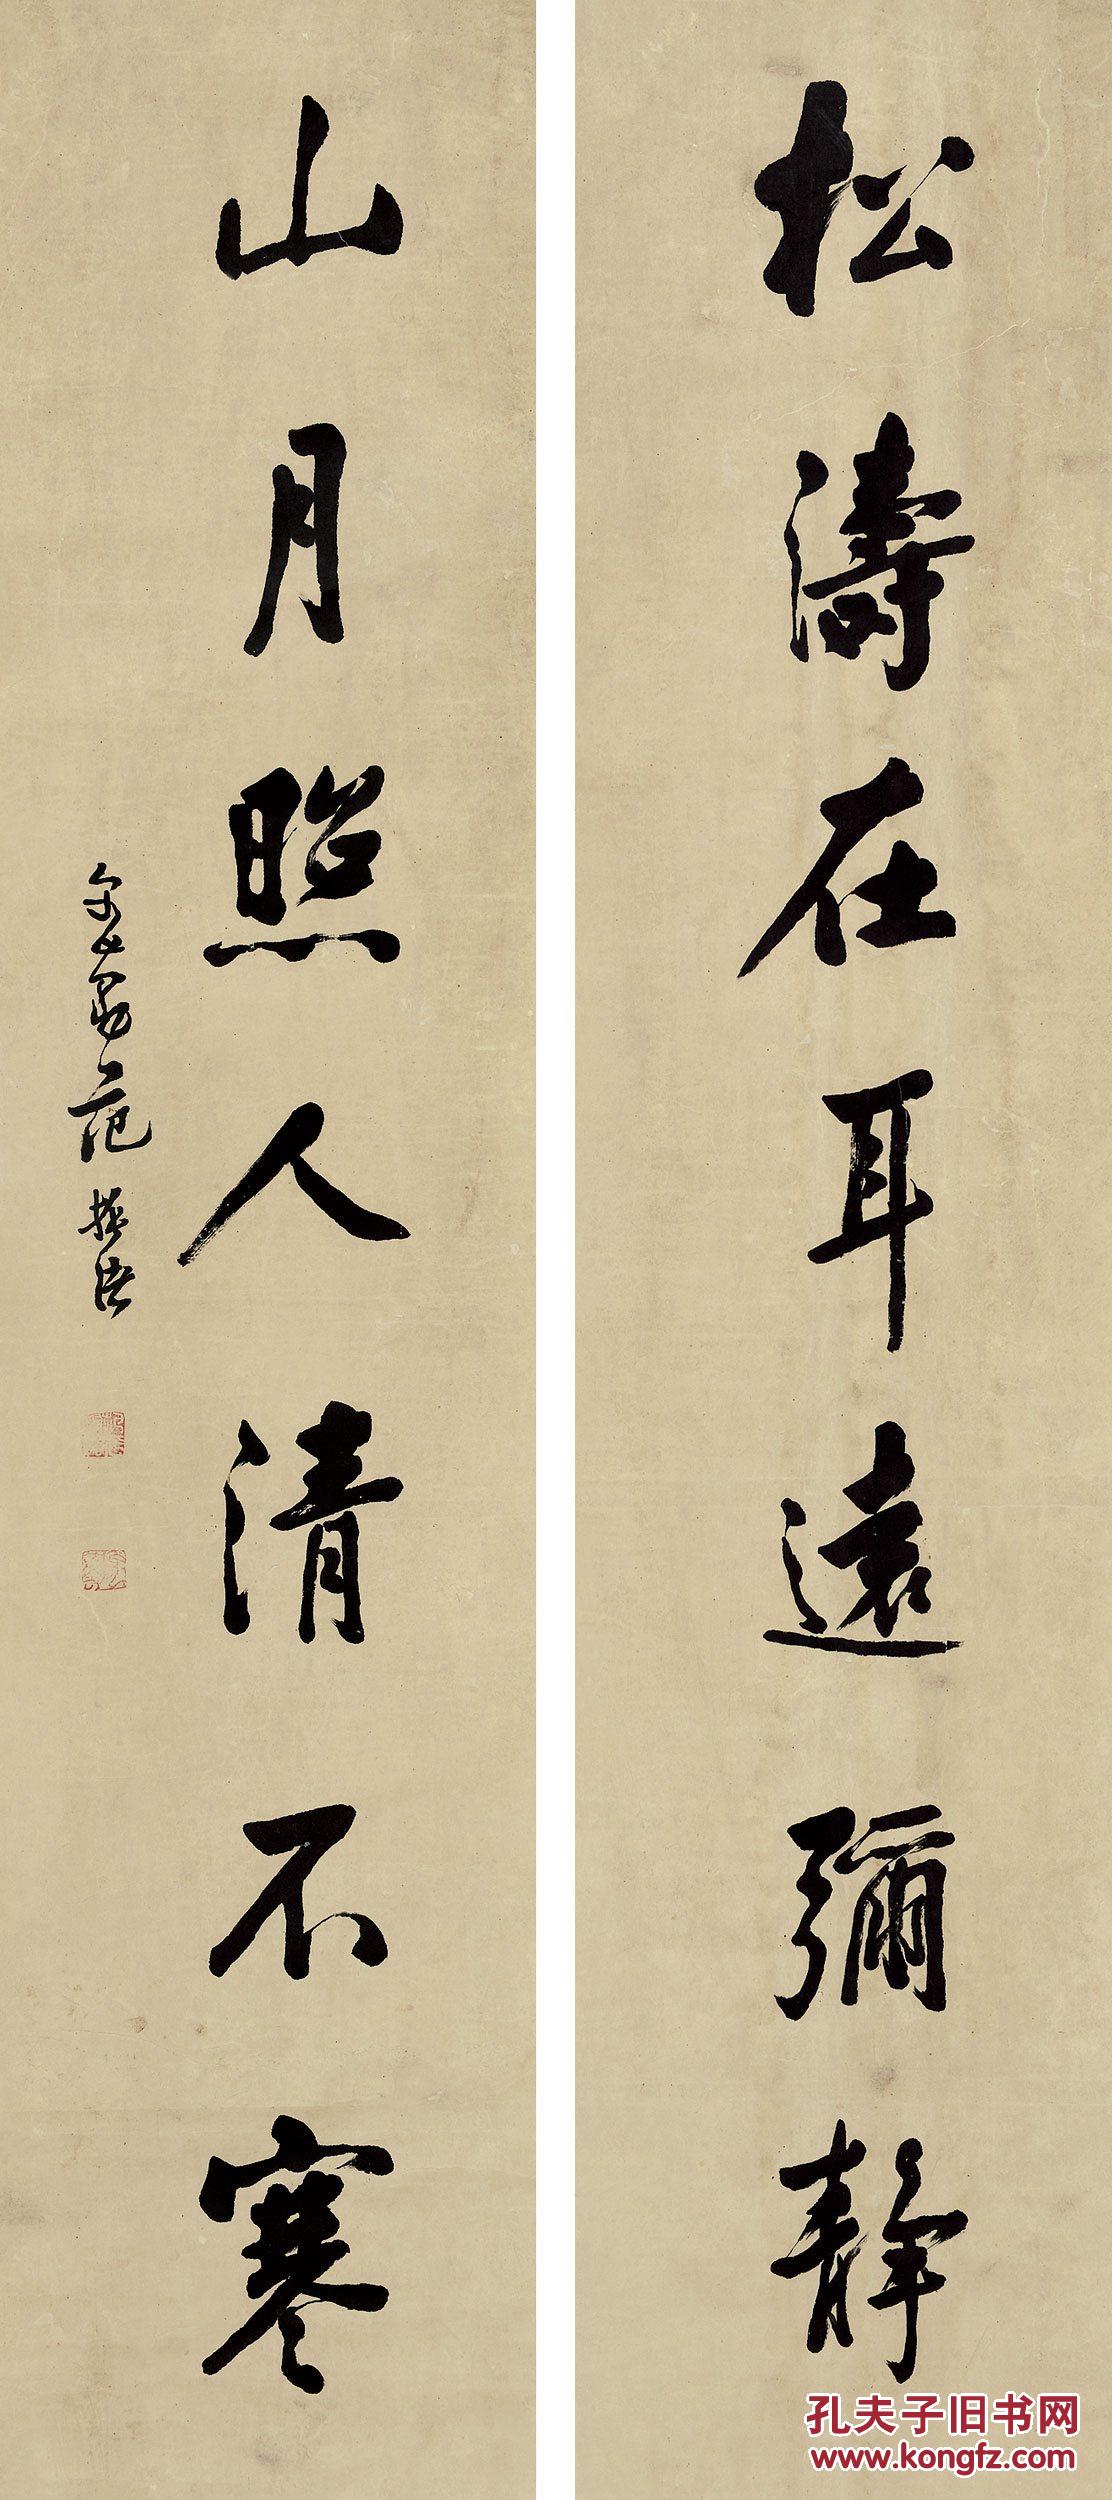 松濤在耳遠彌靜
山月照人清不寒
范振緒
孔夫子旧书网
www.kongfz.com